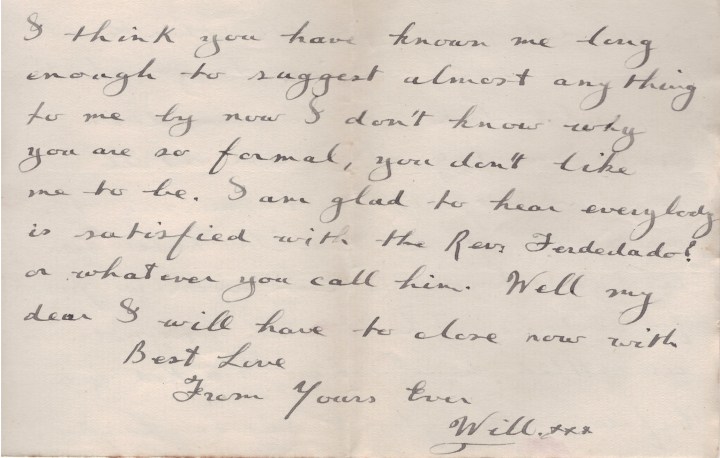 I think you have known me long
enough to suggest almost anything
to me by now I don't know why
you are so formal, you don't like
me to be. I am glad to hear everybody
is satisfied with the Revs Ferdedado?
or whatever you call him. Well my
dear I will have to close now with
Best Love
From Yours Ever
Will. xxx